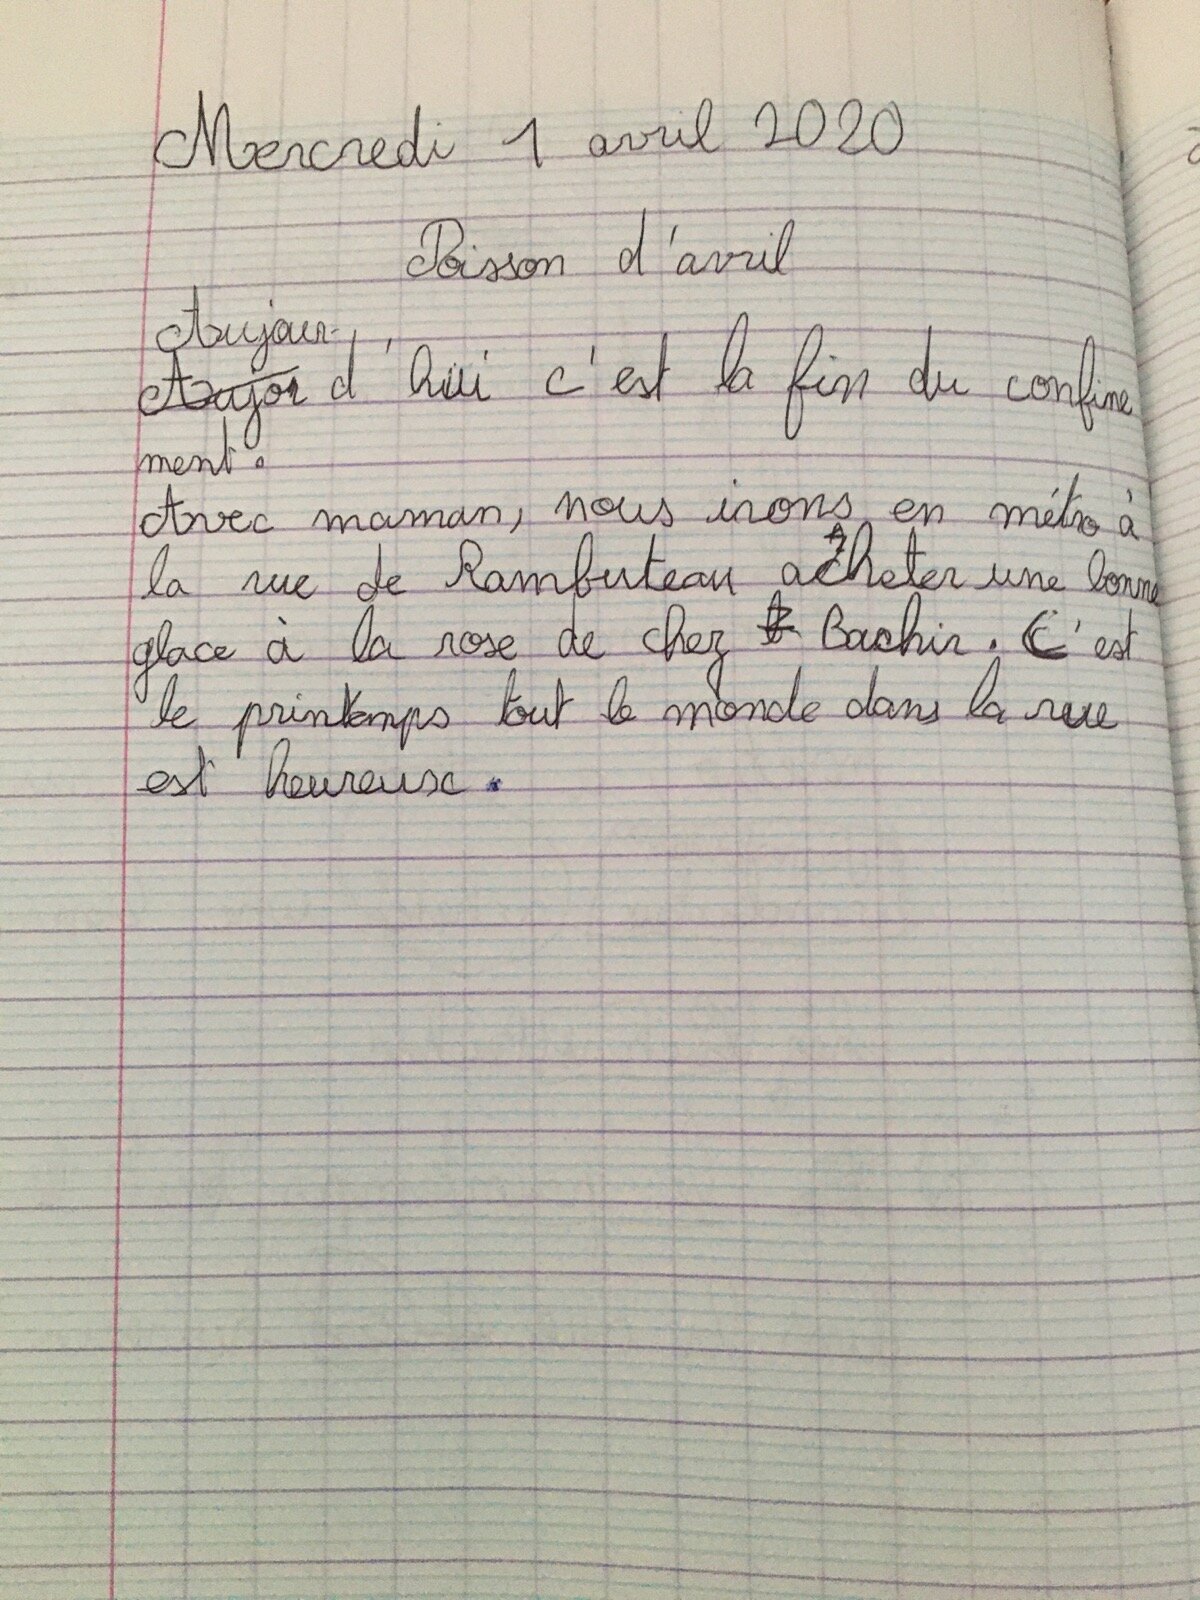 Mercredi 1 avril 2020
Poisson d'avril
Aujour-
Aujor d'hui c'est la fin du confine
ment.
Avec maman, nous irons en métro à
la rue de Rambuteau acheter une bonne
glace à la rose de chez Bachir. C'est
le printemps tout le monde dans la rue
est heureuse.